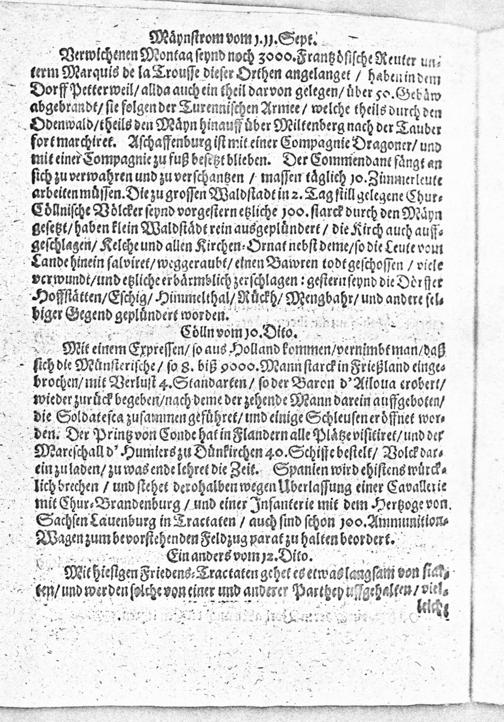 Mäynstrom vom 1.11. Sept.
Verwichenen Montag seynd noch 3000. Frantzösische Reuter un-
term Marquis de la Trousse dieser Orthen angelanget / haben in dem
Dorff Petterweil / allda auch ein theil darvon gelegen / über 50. Gebäw
abgebrandt / sie folgen der Turennischen Armee / welche theils durch den
Odenwald / theils den Mäyn hinauff über Miltenberg nach der Tauber
fort marchiret. Aschaffenburg ist mit einer Compagnie Dragoner / und
mit einer Compagnie zu fuß besetzt blieben. Der Commendant fängt an
sich zu verwahren und zu verschantzen / massen täglich 10. Zimmerleute
arbeiten müssen. Die zu grossen Waldstadt in 2. Tag still gelegene Chur-
Cöllnische Völcker seynd vorgestern etzliche 100. starck durch den Mäyn
gesetzt / haben klein Waldstädt rein ausgeplündert / die Kirch auch auff-
geschlagen / Kelche und allen Kirchen-Ornat nebst deme / so die Leute vom
Lande hinein salviret / weggeraubt / einen Bawren todt geschossen / viele
verwundt / und etzliche erbärmblich zerschlagen: gestern seynd die Dörffer
Hoffstätten / Eschig / Himmelthal / Rückh / Mengbahr / und andere sel-
biger Gegend geplündert worden.
Cölln vom 10. Dito.
Mit einem Expressen / so aus Holland kommen / vernimbt man / daß
sich die Münsterische / so 8. biß 9000. Mann starck in Frießland einge-
brochen / mit Verlust 4. Standarten / so der Baron d'Atloua erobert /
wieder zurück begeben / nach deme der zehende Mann darein auffgeboten /
die Soldatesca zusammen geführet / und einige Schleusen eröffnet wor-
den. Der Printz von Conde hat in Flandern alle Plätze visitiret / und der
Mareschall d'Humiers zu Dünkirchen 40. Schiffe bestelt / Volck dar-
ein zu laden / zu was ende lehret die Zeit. Spanien wird ehistens würck-
lich brechen / und stehet derohalben wegen Uberlassung einer Cavallerie
mit Chur-Brandenburg / und einer Infanterie mit dem Hertzoge von
Sachsen Lauenburg in Tractaten / auch sind schon 100. Ammunition-
Wagen zum bevorstehenden Feldzug parat zu halten beordert.
Ein anders vom 12. Dito.
Mit hiesigen Friedens-Tractaten gehet es etwas langsam von stat-
ten / und werden solche von einer und anderer Parthey uffgehalten / viel-
leicht